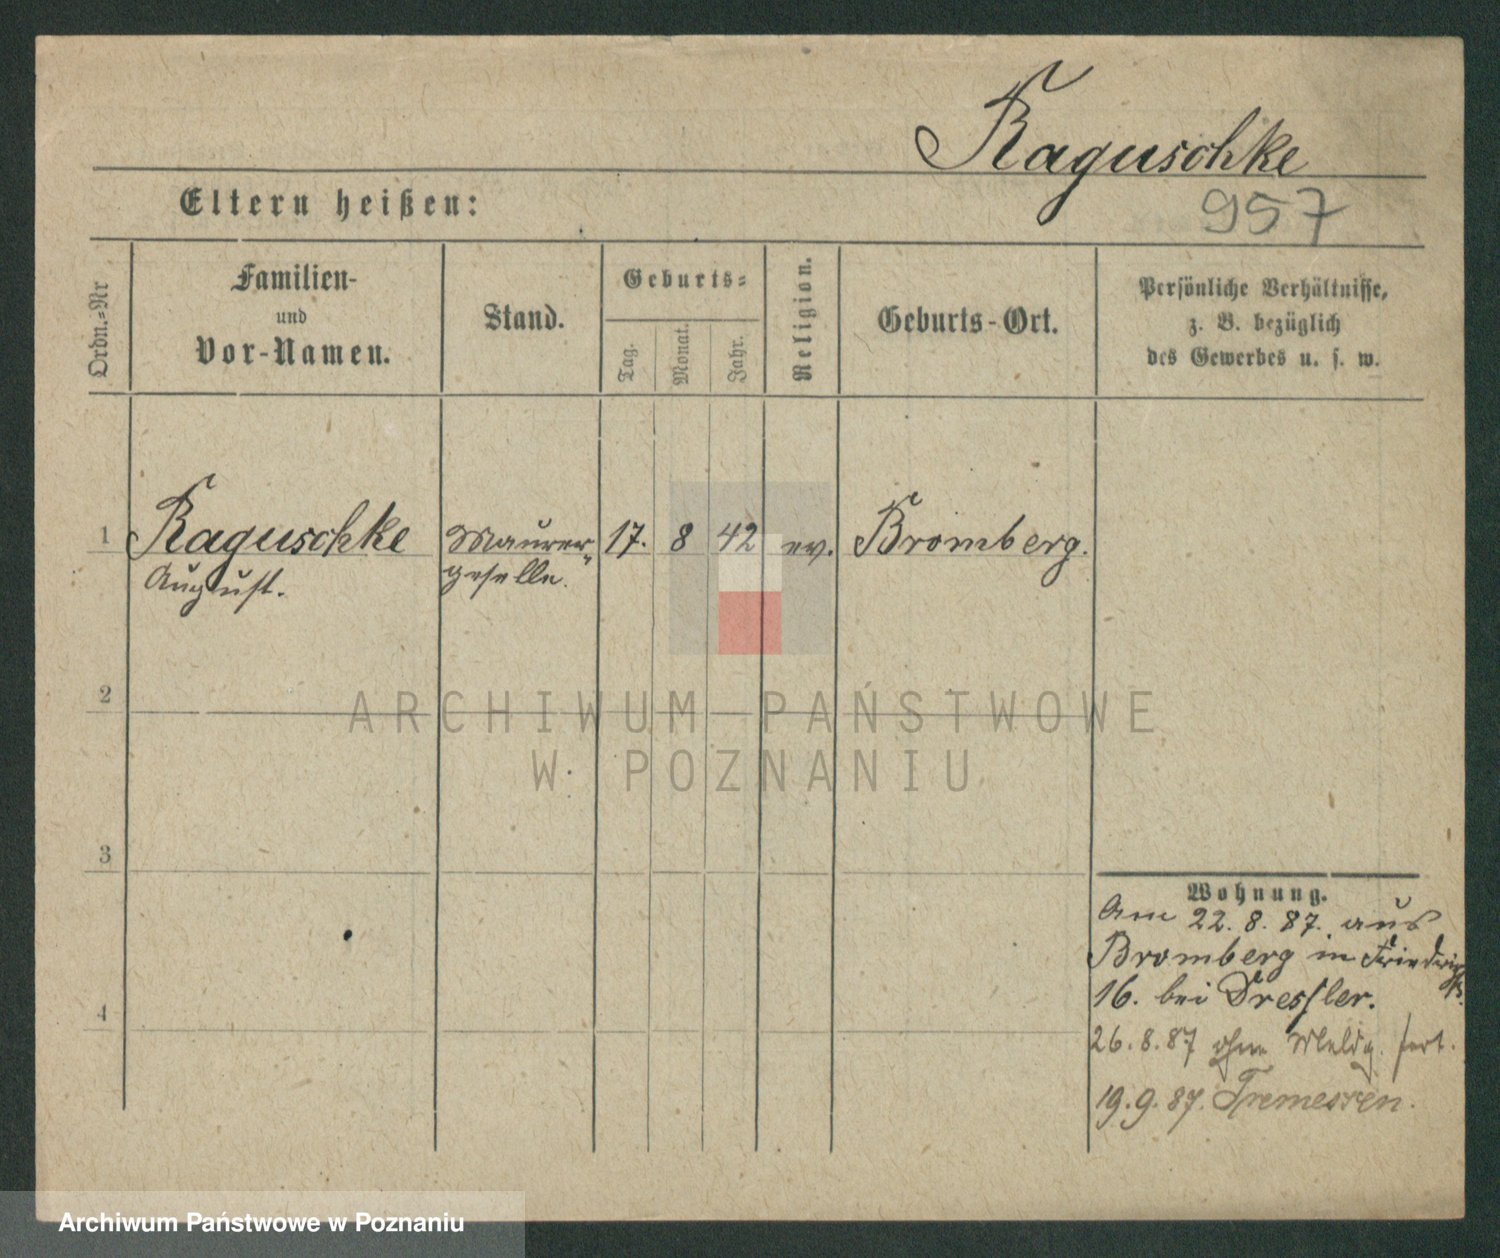 Raguschke
957
Eltern heißen:
Ordn.=Nr
Familien-
und
Vor-Namen.
Stand.
Geburts=
Tag.
Monat.
Jahr.
Religion.
Geburts-Ort.
Persönliche Verhältnisse,
z. B. bezüglich
des Gewerbes u. s. w.
1 Raguschke Maurer- 17. 8 42 ev. Bromberg.
August. geselle.
2
3
4
Wohnung.
Am 22. 8. 87. aus
Bromberg in
16. bei Dressler.
26. 8. 87 ohne Meldg. fort.
19. 9. 87. Tremessen.
ARCHIWUM PAŃSTWOWE
W POZNANIU
Archiwum Państwowe w Poznaniu